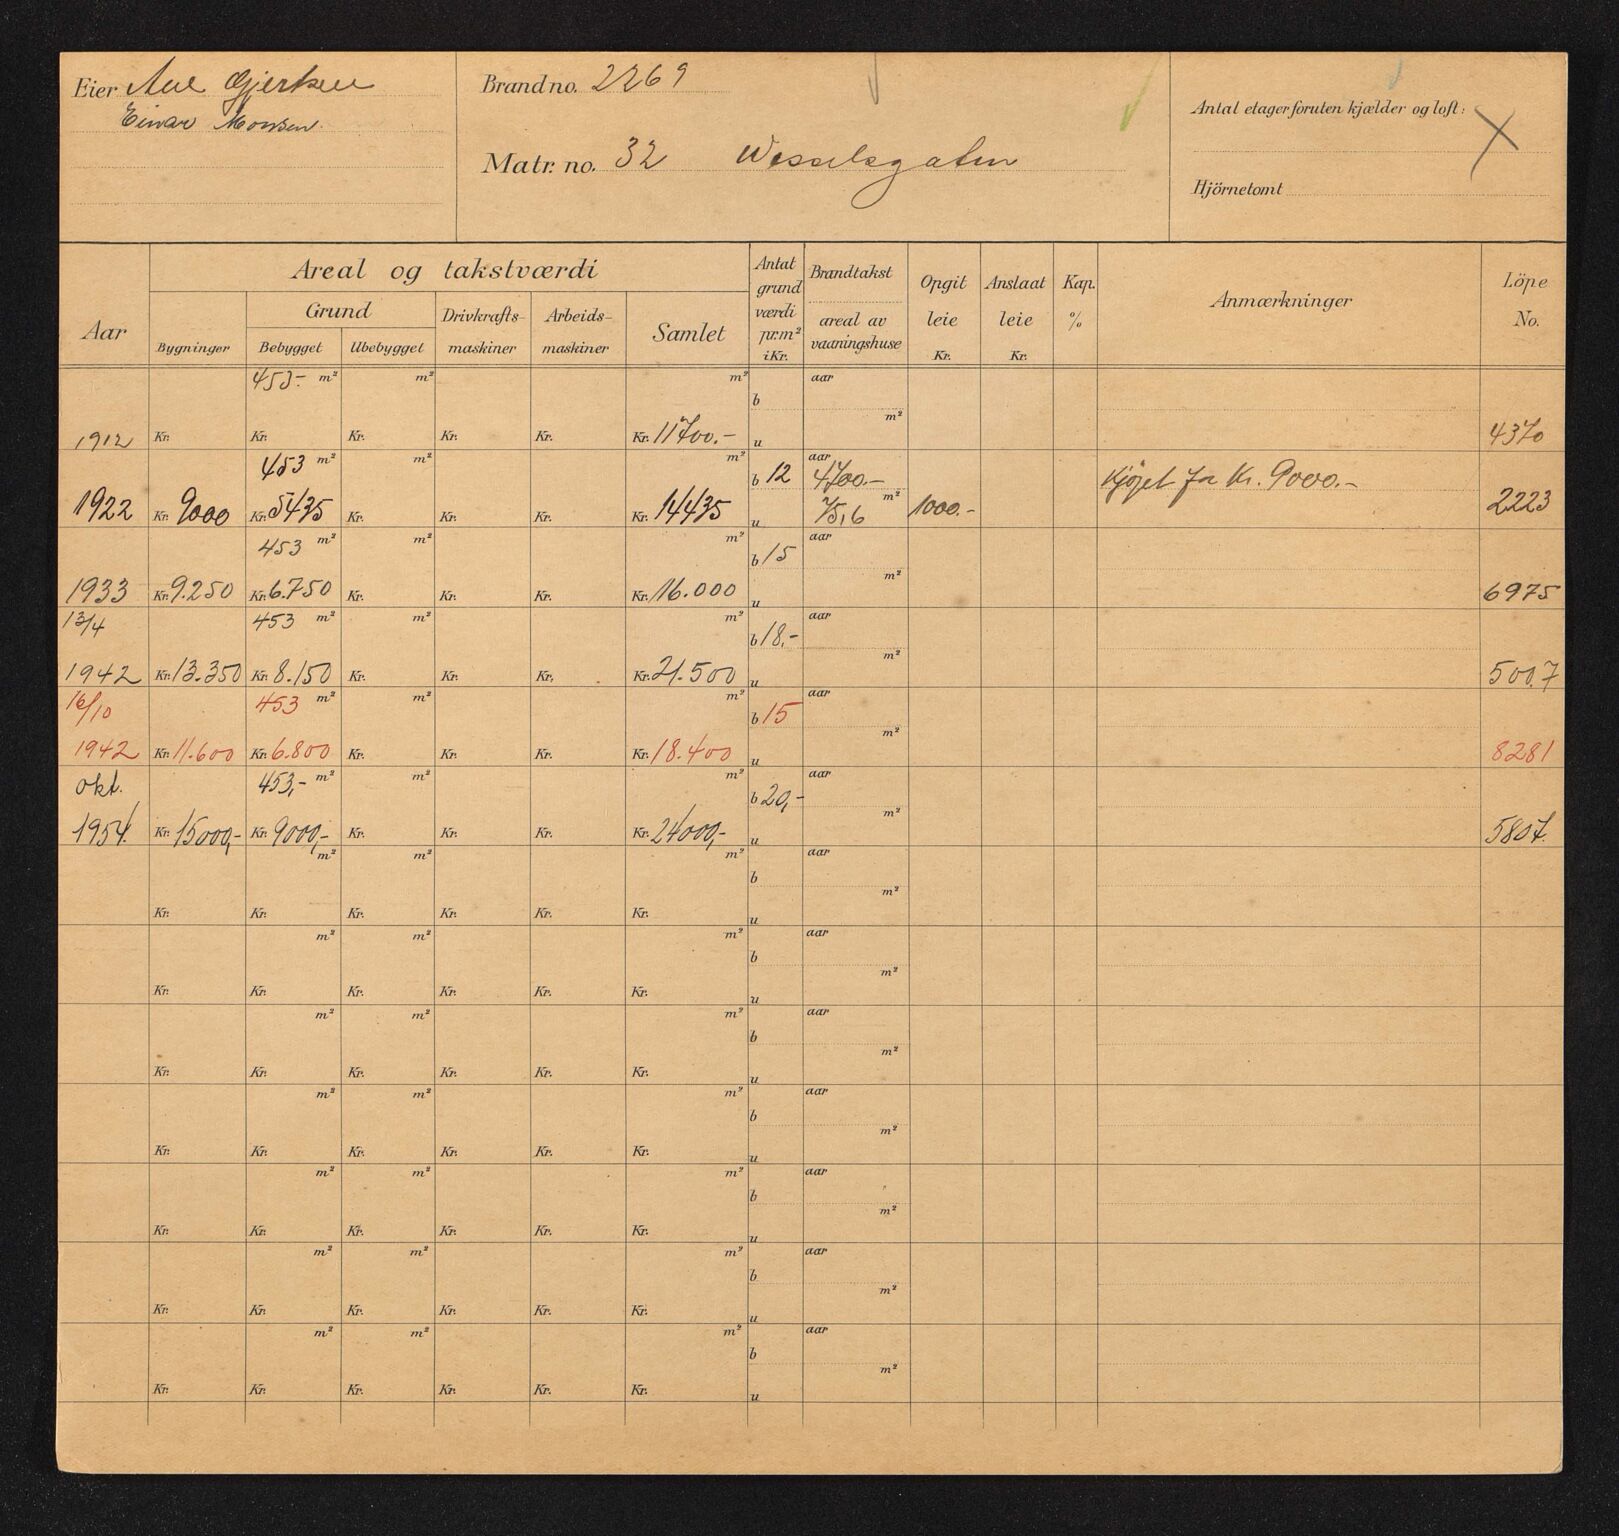 Eier Ane Gjertsen
Einar Monsen.
Brandno. 2269
Matr. no. 32 Wesselsgaten
Antal etager foruten kjælder og loft:
Hjörnetomt
Aar
Areal og takstværdi
Bygninger
Grund
Bebygget
Ubebygget
Drivkrafts-
maskiner
Arbeids-
maskiner
Samlet
Antat
grund
værdi
pr.m²
i Kr.
Brandtakst
areal av
vaaningshuse
Opgit
leie
Kr.
Anslaat
leie
Kr.
Kap.
%
Anmærkninger
Löpe
No.
453.- m² m² m² b aar m²
1912 Kr. Kr. Kr. Kr. Kr. Kr. 11700.- u 4370
453 m² m² m² b 12 aar 4700.- m² Kjöpt for Kr. 9000.-
1922 Kr. 9000 Kr. 5435 Kr. Kr. Kr. Kr. 14435 u 75,6 1000.- 2223
453 m² m² m² b 15 aar m²
1933 Kr. 9.250 Kr. 6.750 Kr. Kr. Kr. Kr. 16.000 u 6975
13/4 453 m² m² m² b 18,- aar m²
1942 Kr. 13.350 Kr. 8.150 Kr. Kr. Kr. Kr. 21.500 u 500.7
16/10 453 m² m² m² b 15 aar m²
1942 Kr. 11.600 Kr. 6.800 Kr. Kr. Kr. Kr. 18.400 u 8281
okt. 453,- m² m² m² b 20,- aar m²
1954. Kr. 15000,- Kr. 9000,- Kr. Kr. Kr. Kr. 24000,- u 5807.
m² m² m² b aar m²
Kr. Kr. Kr. Kr. Kr. Kr. u
m² m² m² b aar m²
Kr. Kr. Kr. Kr. Kr. Kr. u
m² m² m² b aar m²
Kr. Kr. Kr. Kr. Kr. Kr. u
m² m² m² b aar m²
Kr. Kr. Kr. Kr. Kr. Kr. u
m² m² m² b aar m²
Kr. Kr. Kr. Kr. Kr. Kr. u
m² m² m² b aar m²
Kr. Kr. Kr. Kr. Kr. Kr. u
m² m² m² b aar m²
Kr. Kr. Kr. Kr. Kr. Kr. u